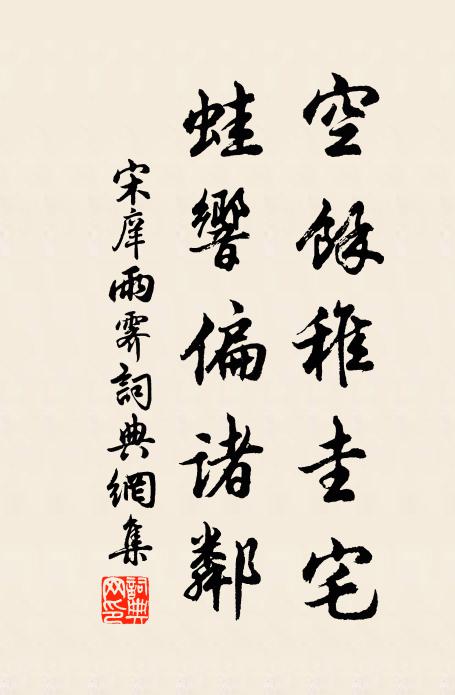 空餘稚圭宅
蛙響偏諸鄰
宋庠雨霽詞典網集
詞典網印